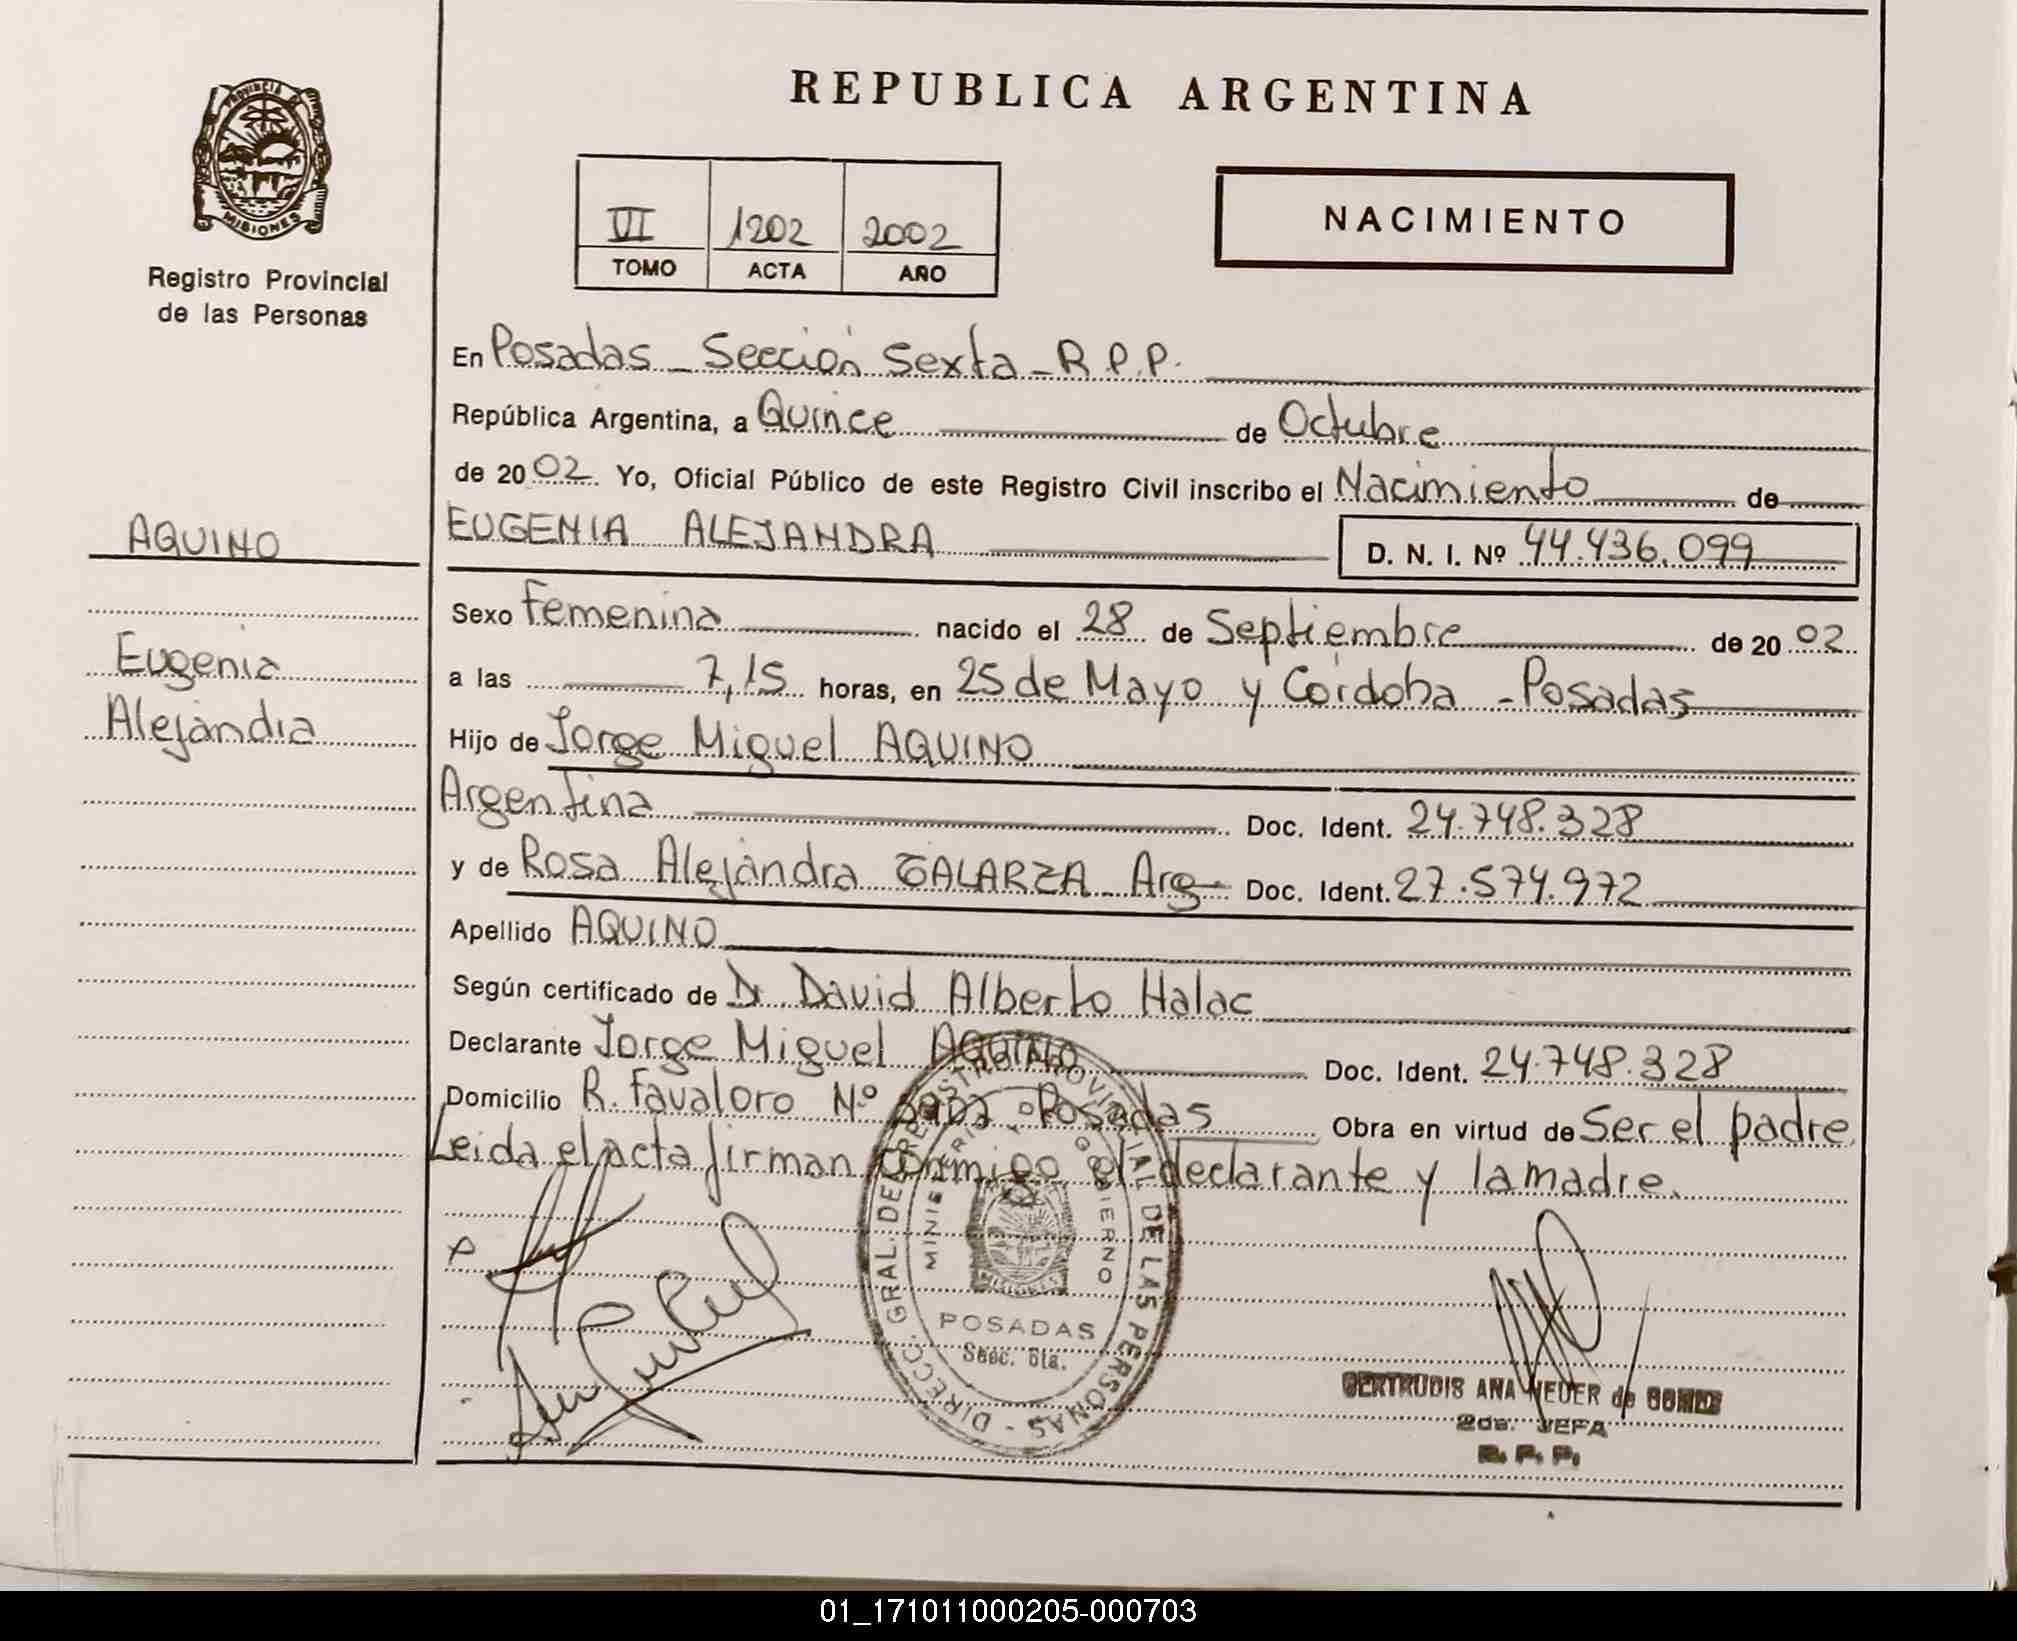 REPUBLICA ARGENTINA
PROVINCIA DE
MISIONES
Registro Provincial
de las Personas
VI 1202 2002
TOMO ACTA AÑO
NACIMIENTO
En Posadas - Sección Sexta - R.P.P.
República Argentina, a Quince de Octubre
de 2002. Yo, Oficial Público de este Registro Civil inscribo el Nacimiento de
AQUINO
EUGENIA ALEJANDRA D. N. I. Nº 44.436.099
Sexo Femenina nacido el 28 de Septiembre de 2002
Eugenia
Alejandra
a las 7,15 horas, en 25 de Mayo y Córdoba - Posadas
Hijo de Jorge Miguel AQUINO
Argentina Doc. Ident. 24.748.328
y de Rosa Alejandra GALARZA - Arg- Doc. Ident. 27.574.972
Apellido AQUINO
Según certificado de Dr. David Alberto Halac
Declarante Jorge Miguel AQUINO Doc. Ident. 24.748.328
Domicilio R. Favaloro Nº Posadas Obra en virtud de Ser el padre
Leida el acta firman conmigo el declarante y la madre.
DIRECC. GRAL. DEL REGISTRO PROVINCIAL DE LAS PERSONAS -
MINISTERIO DE GOBIERNO
MISIONES
POSADAS
Secc. 6ta.
GERTRUDIS ANA de
2da. JEFA
R. P. P.
01_171011000205-000703